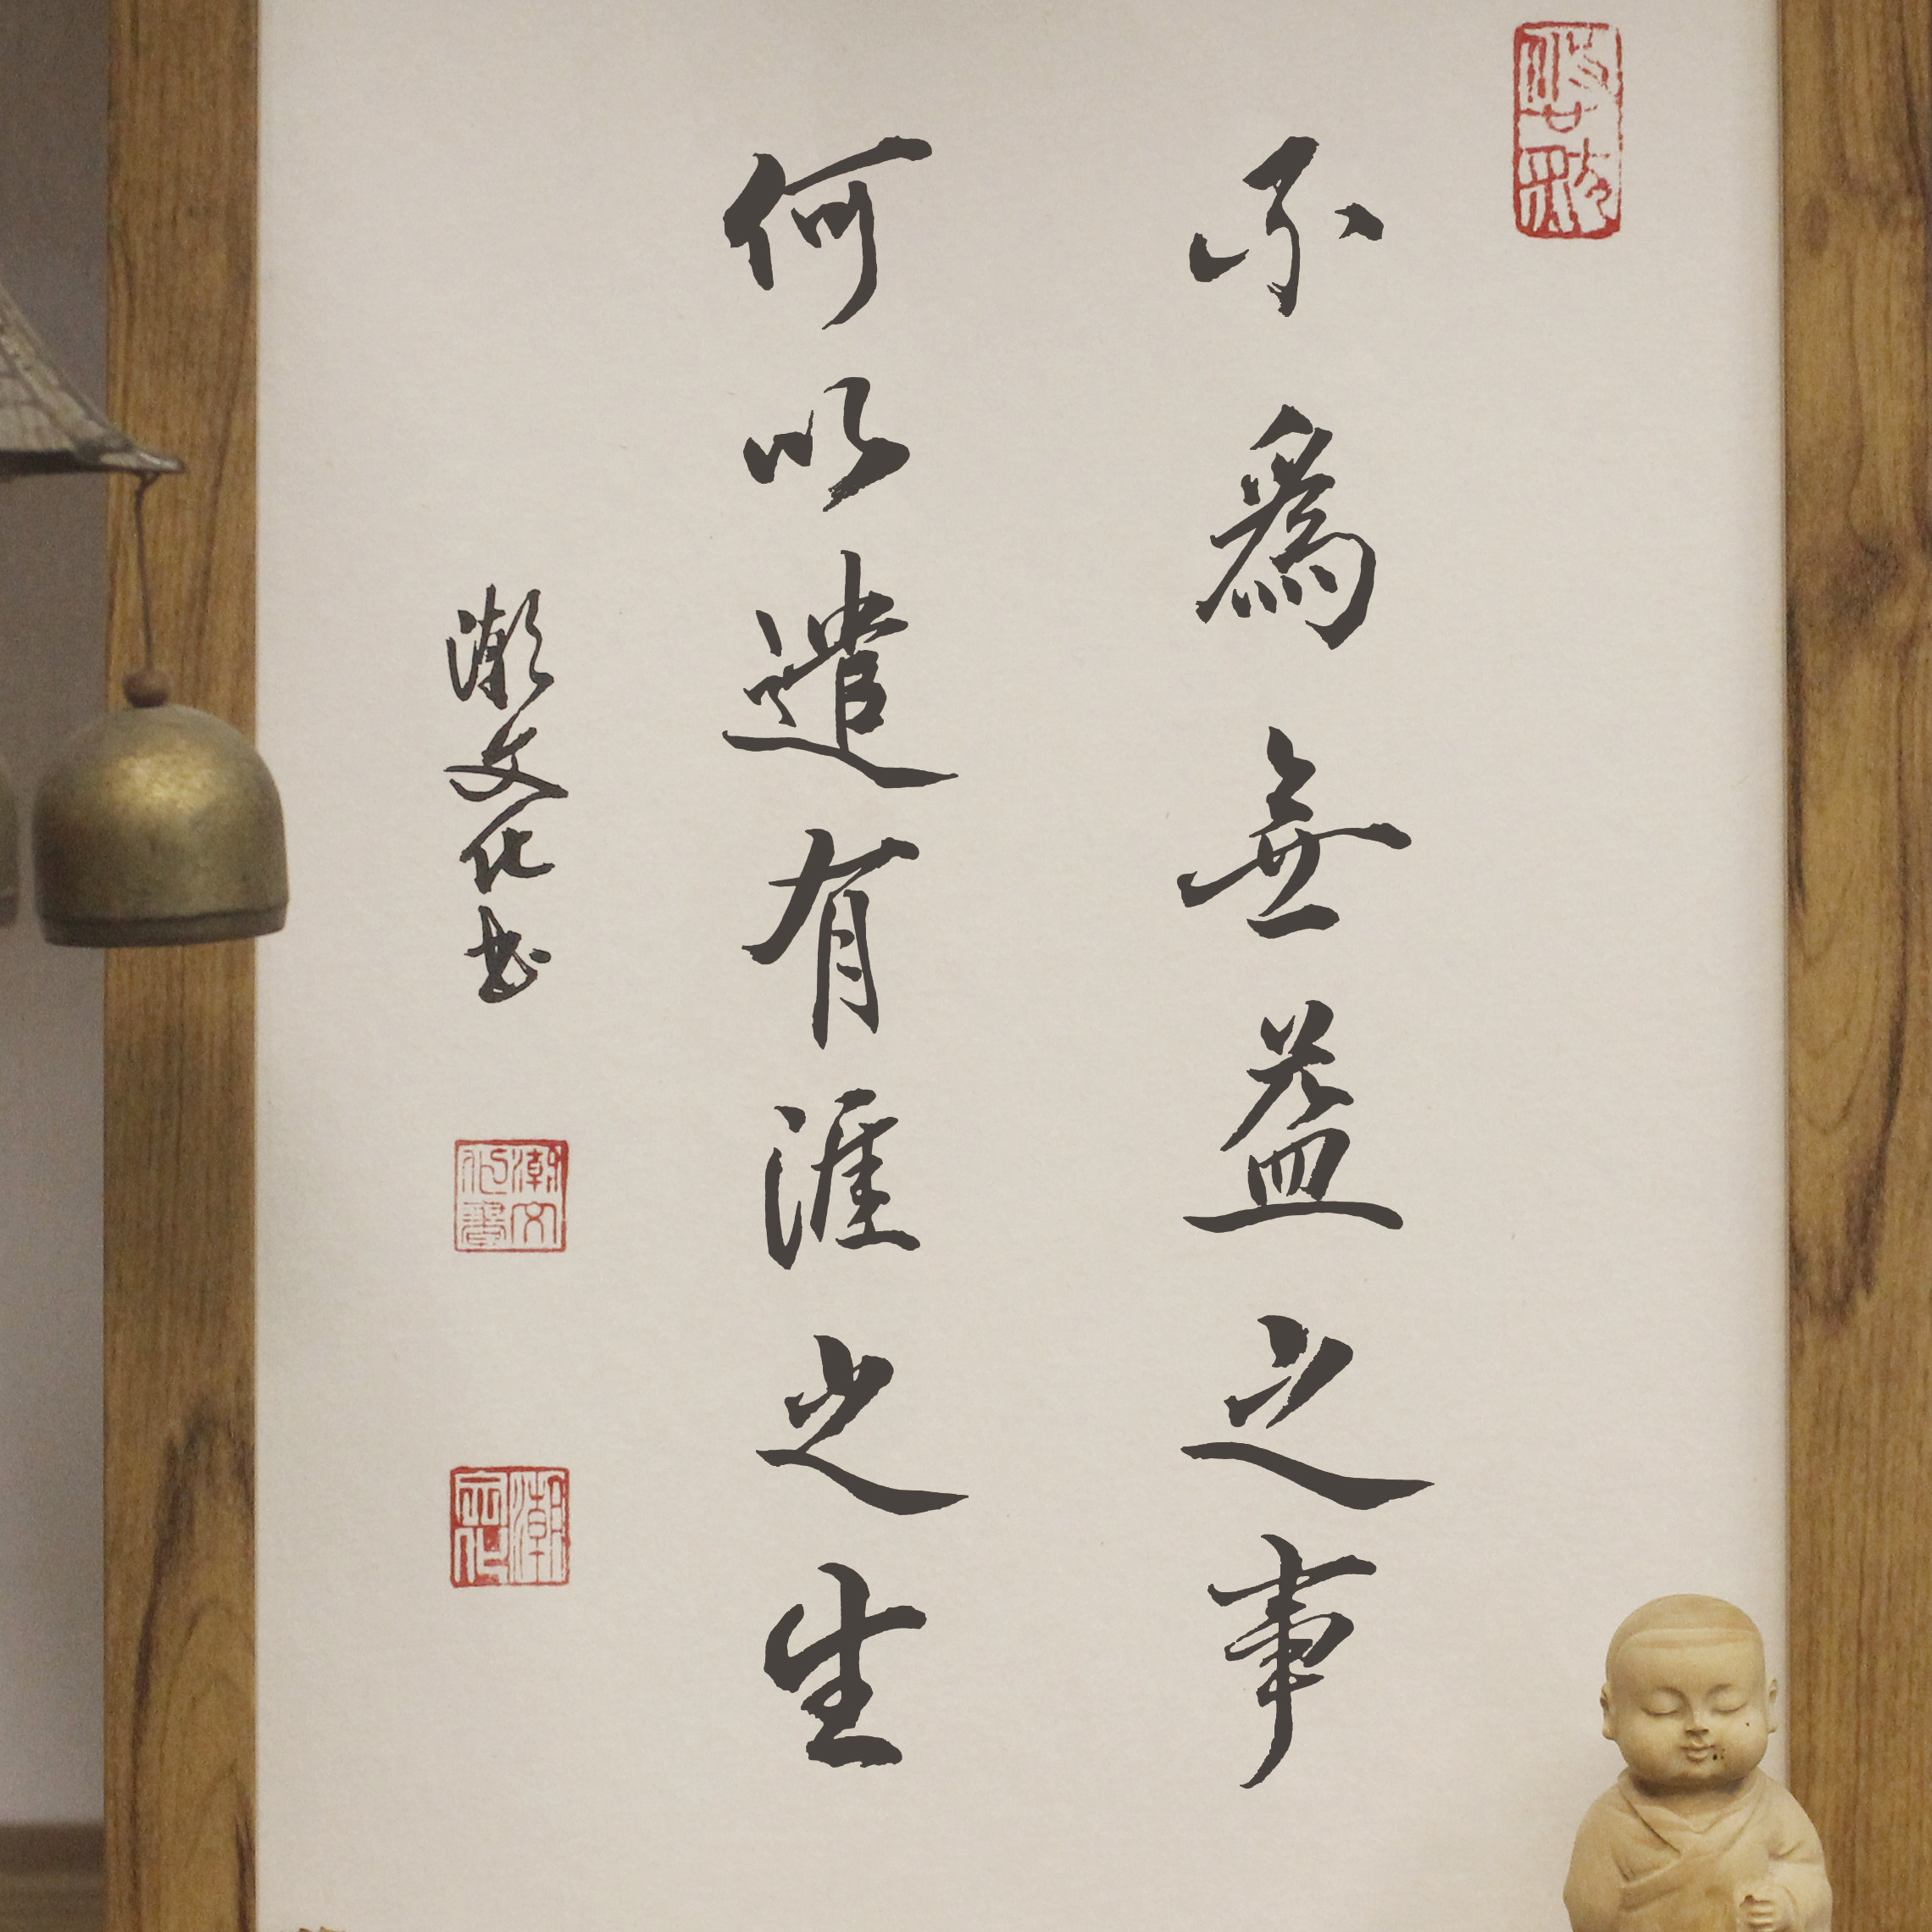 不為無益之事
何以遣有涯之生
潮文化书
潮文化書